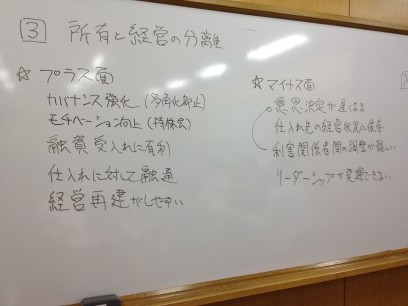 3 所有と経営の分離
☆ プラス面
ガバナンス強化 (多角化抑止)
モチベーション向上 (持株会)
融資受入れに有利
仕入れに対して融通
経営再建がしやすい
☆ マイナス面
意思決定が遅くなる
仕入れ先の経営状況に依存
利害関係者間の調整が難しい
リーダーシップが発揮できない